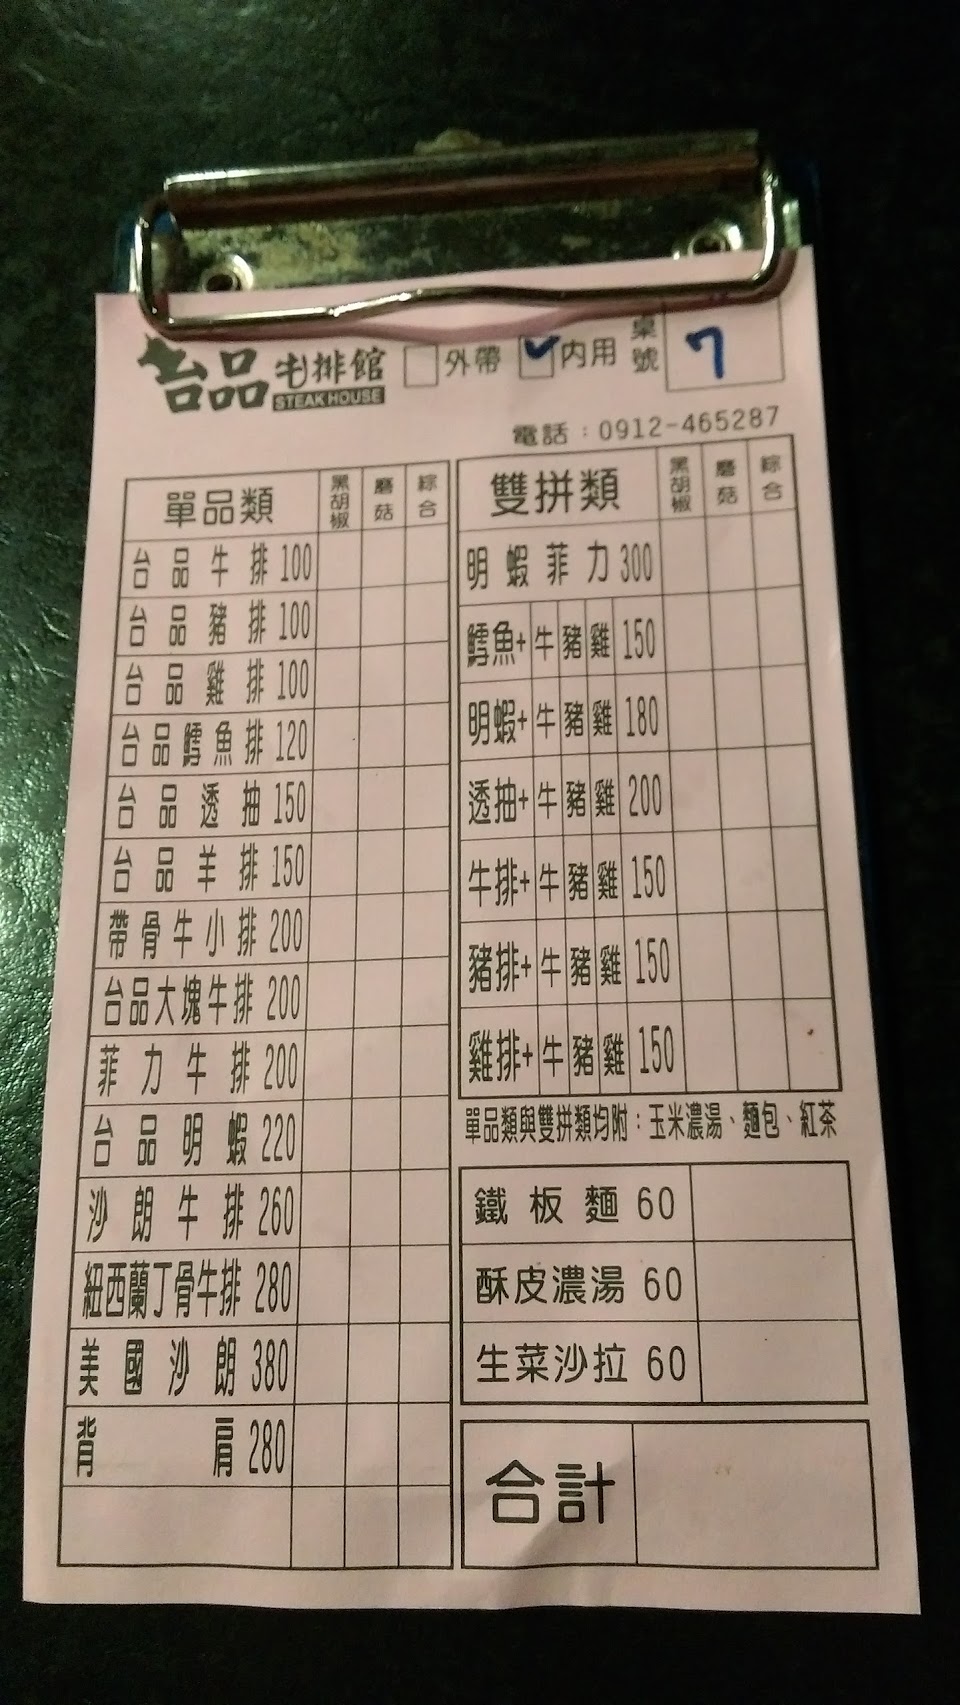 台品牛排館 外帶 內用 桌號 7
STEAK HOUSE
電話：0912-465287
單品類 黑胡椒 蘑菇 綜合
台品牛排 100
台品豬排 100
台品雞排 100
台品鱈魚排 120
台品透抽 150
台品羊排 150
帶骨牛小排 200
台品大塊牛排 200
菲力牛排 200
台品明蝦 220
沙朗牛排 260
紐西蘭丁骨牛排 280
美國沙朗 380
背肩 280
雙拼類 黑胡椒 蘑菇 綜合
明蝦菲力 300
鱈魚+ 牛 豬 雞 150
明蝦+ 牛 豬 雞 180
透抽+ 牛 豬 雞 200
牛排+ 牛 豬 雞 150
豬排+ 牛 豬 雞 150
雞排+ 牛 豬 雞 150
單品類與雙拼類均附：玉米濃湯、麵包、紅茶
鐵板麵 60
酥皮濃湯 60
生菜沙拉 60
合計